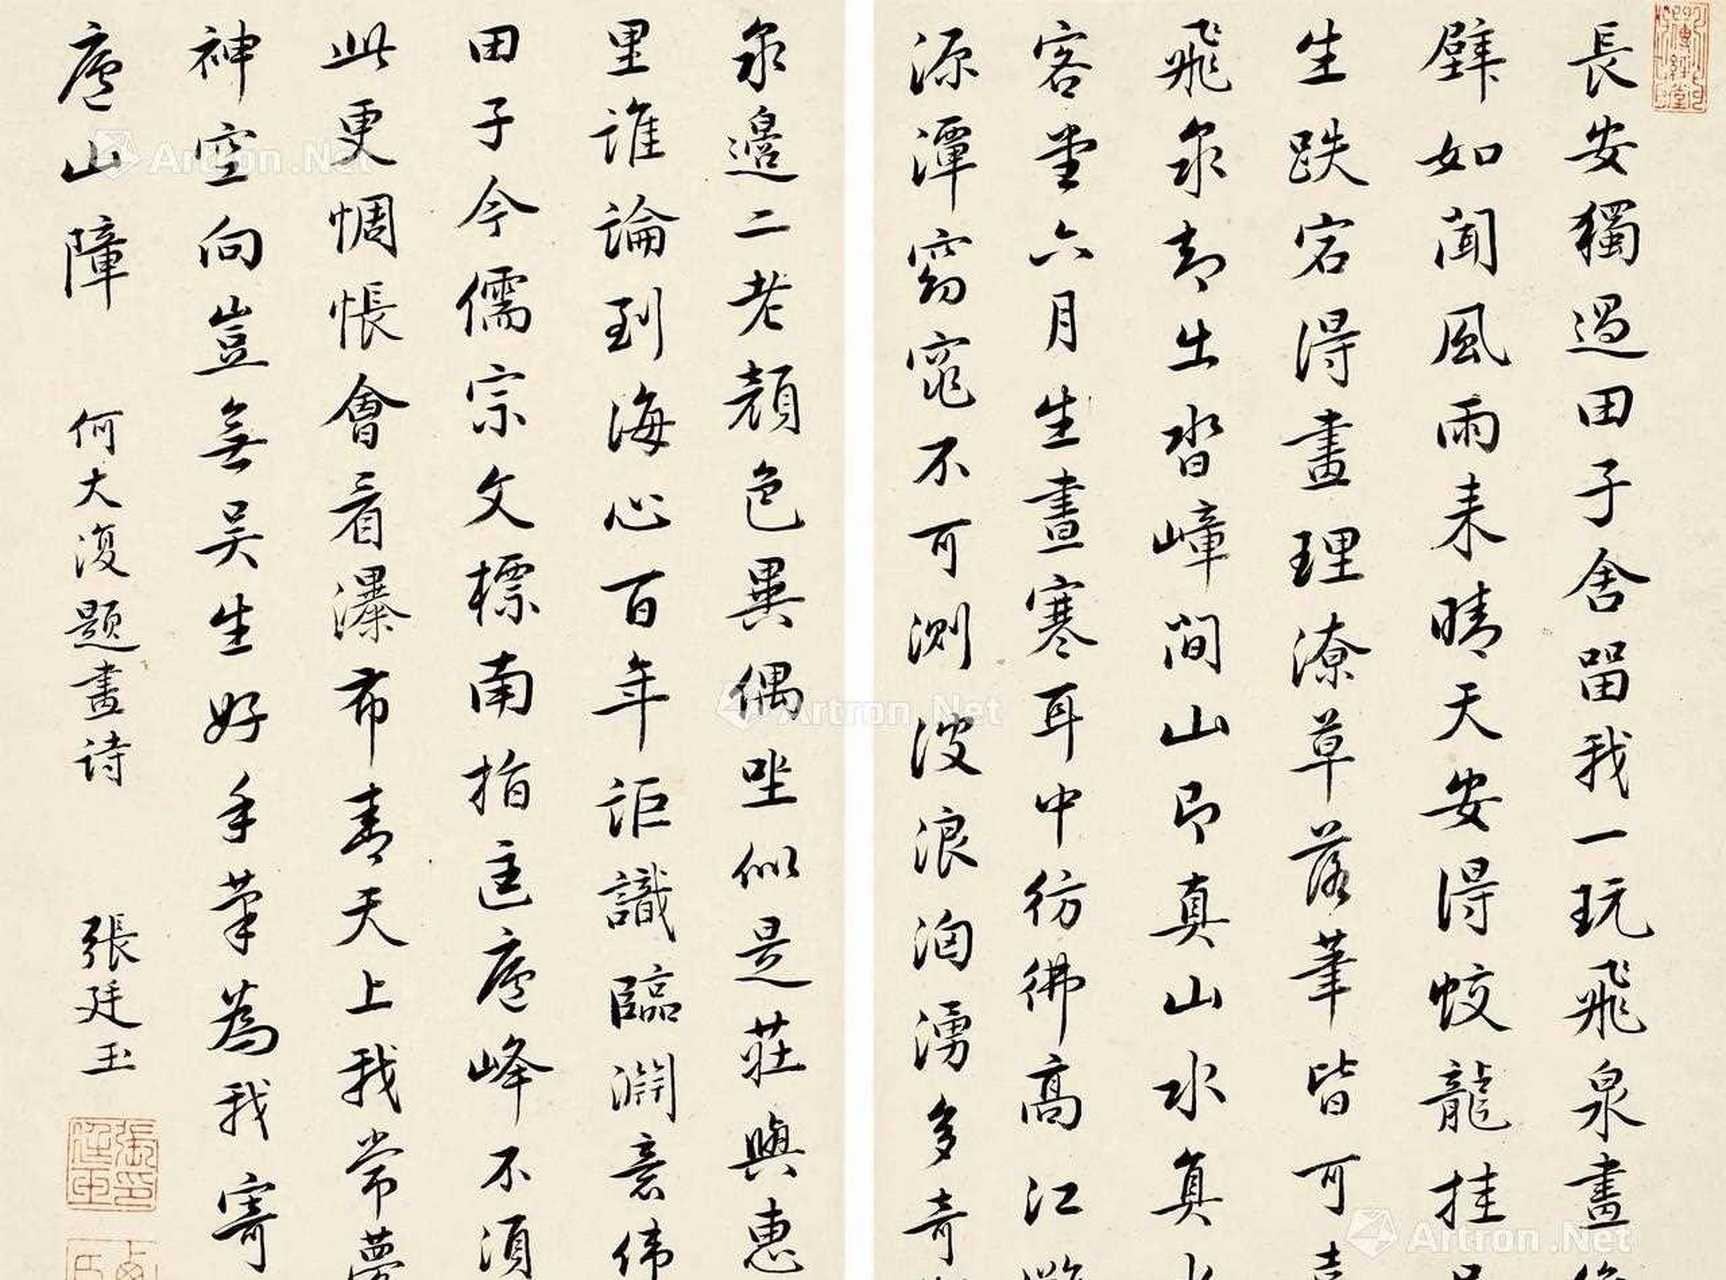 長安獨過田子舍留我一玩飛泉畫
壁如聞風雨来晴天安得蛟龍挂
生跌宕得畫理潦草落筆皆可
飛泉却出沓嶂間山即真山水真
客堂六月生晝寒耳中彷彿高江
源潭窈窕不可測波浪洶湧多奇
泉邊二老顔色異偶坐似是莊與惠
里誰論到海心百年詎識臨淵意偉
田子今儒宗文標南指匡廬峰不須
此更惆悵會看瀑布青天上我常夢
神空向豈無吴生好手筆為我寄
廬山障
何大復題畫詩
張廷玉
張廷玉印
Artron.Net
Artron.Net
Artron.Net